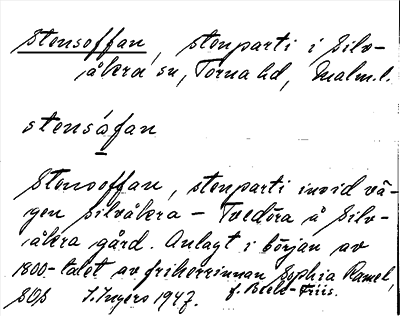 Stensoffan, stenparti i Silv-
åkra sn, Torna hd, Malm.l.
stensåfan
Stensoffan, stenparti invid vä-
gen Silvåkra – Tvedöra å Silv-
åkra gård. Anlagt i början av
1800-talet av friherrinnan Sophia Ramel,
SOS I. Ingers 1947. f. Beck-Friis.